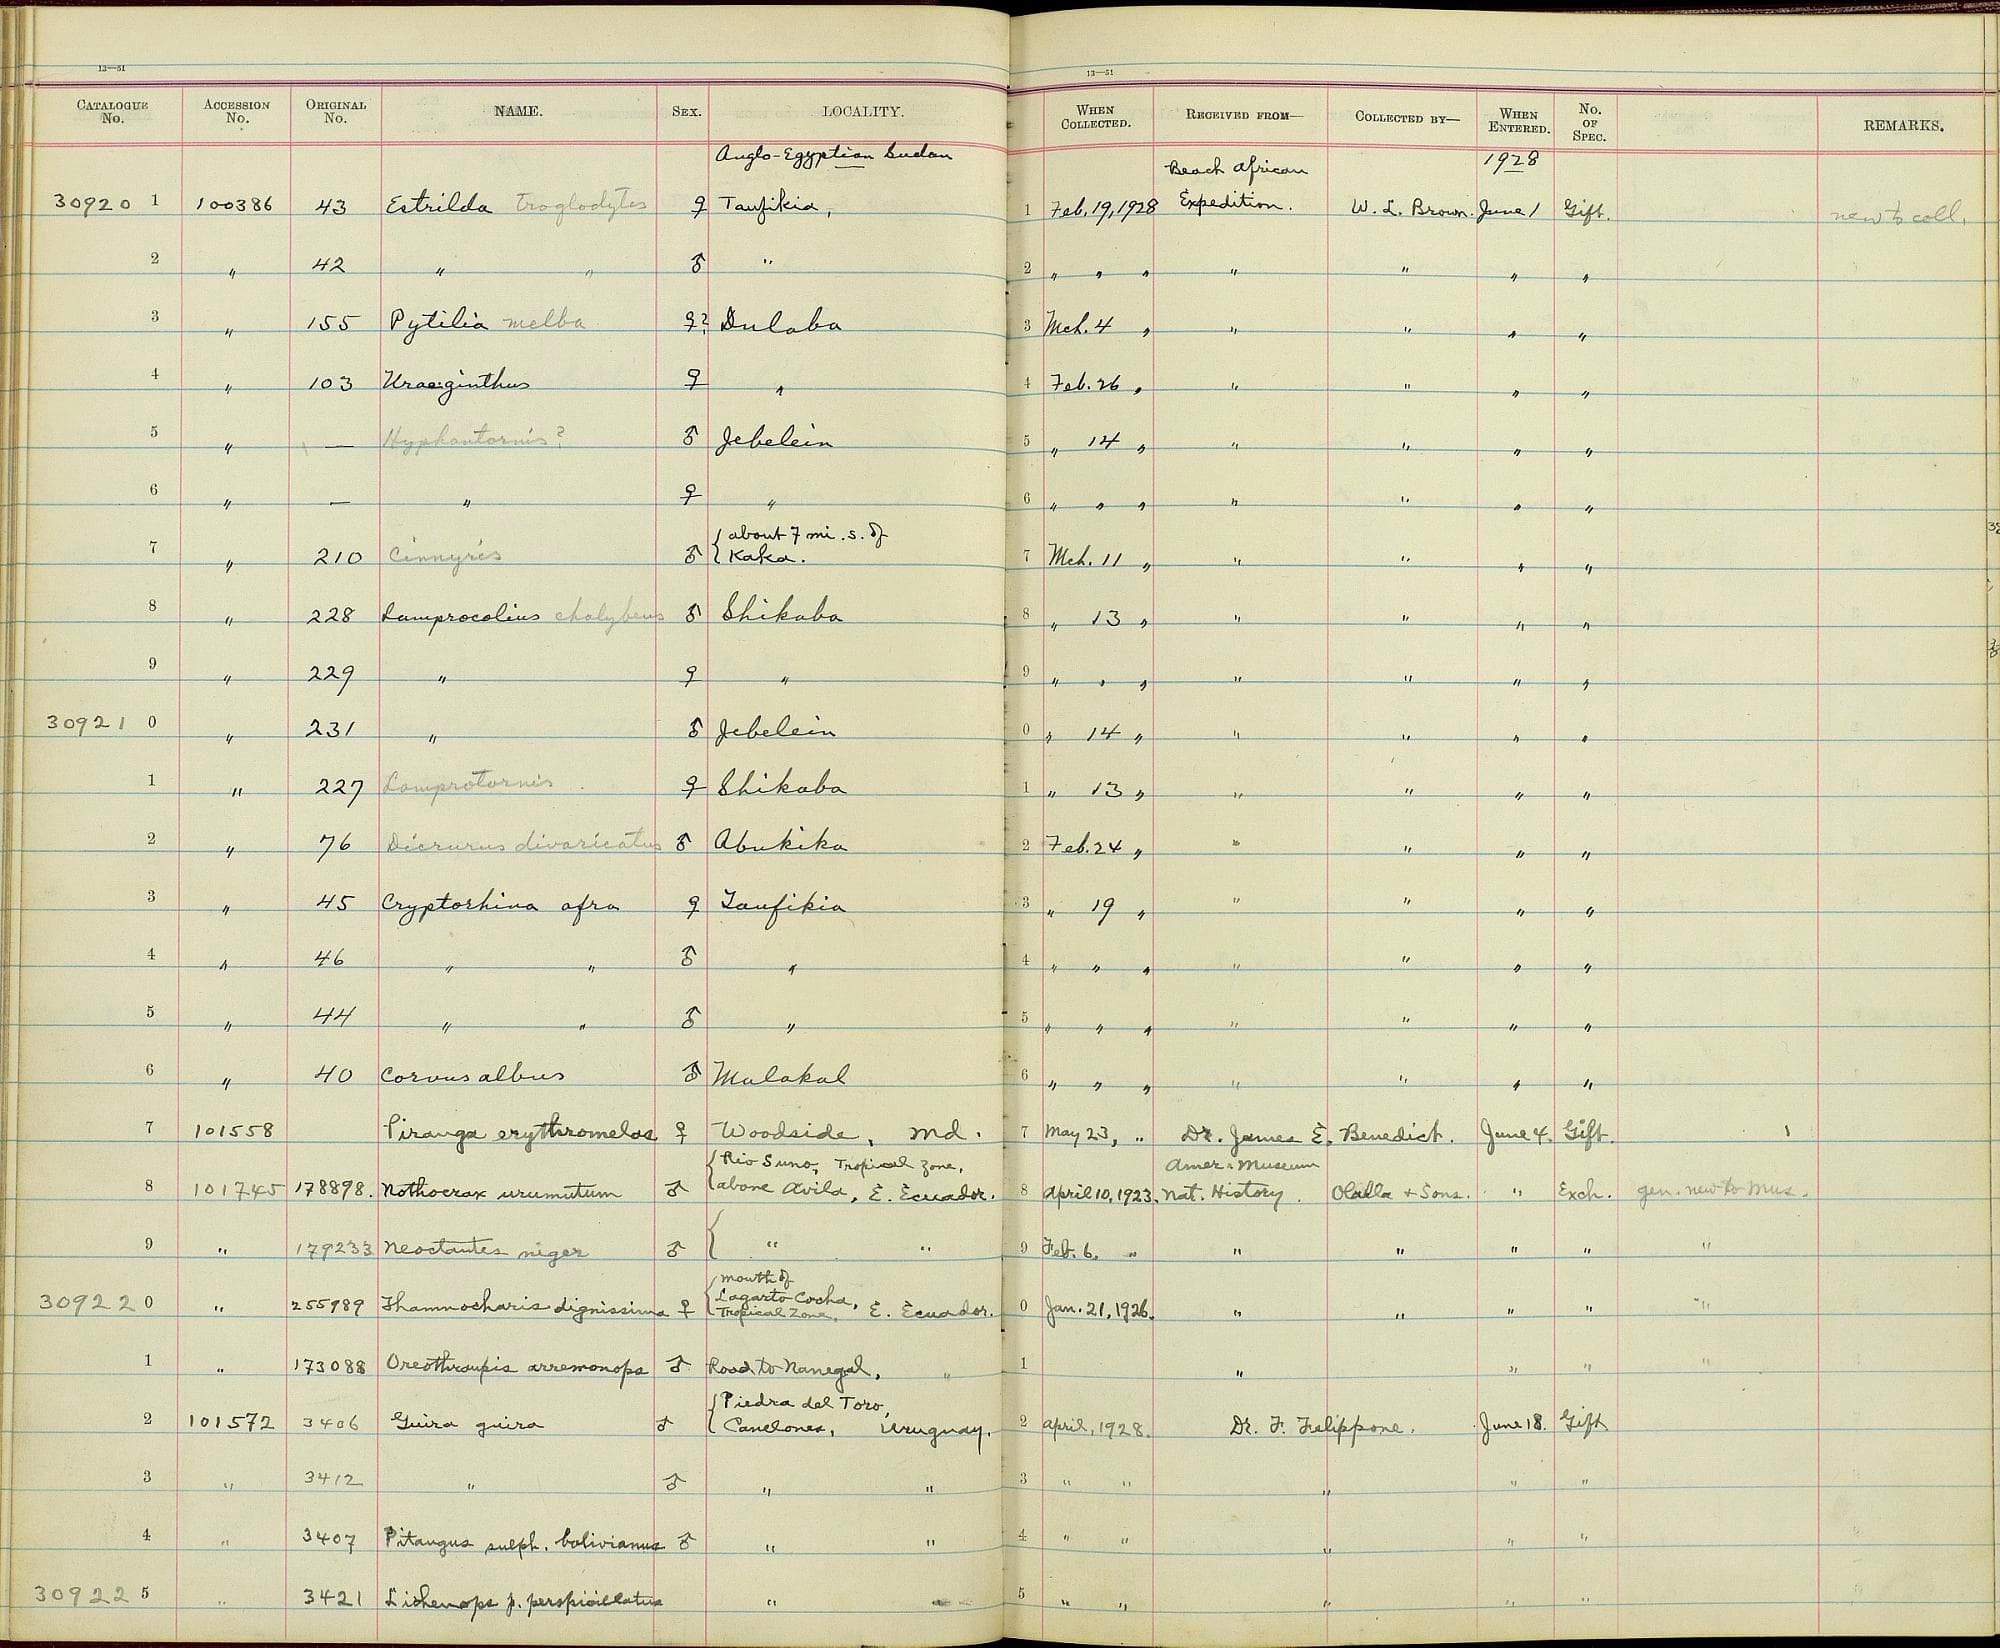 13—51
CATALOGUE No. ACCESSION No. ORIGINAL No. NAME. SEX. LOCALITY.
Anglo-Egyptian Sudan
30920 1 100386 43 Estrilda troglodytes ♀ Taufikia,
2 " 42 " " ♂ "
3 " 155 Pytilia melba ♀? Dulaba
4 " 103 Uraeginthus ♀ "
5 " — Hyphantornis? ♂ Jebelein
6 " — " ♀ "
7 " 210 Cinnyris ♂ { about 7 mi. s. of
Kaka.
8 " 228 Lamprocolius chalybeus ♂ Shikaba
9 " 229 " ♀ "
30921 0 " 231 " ♂ Jebelein
1 " 227 Lamprotornis ♀ Shikaba
2 " 76 Dicrurus divaricatus ♂ Abukika
3 " 45 Cryptorhina afra ♀ Taufikia
4 " 46 " " ♂ "
5 " 44 " " ♂ "
6 " 40 Corvus albus ♂ Malakal
7 101558 Piranga erythromelas ♀ Woodside, Md.
8 101745 178898. Nothocrax urumutum ♂ { Rio Suno, Tropical Zone,
above Avila, E. Ecuador.
9 " 179233 Neoctantes niger ♂ { " "
30922 0 " 255989 Thamnocharis dignissima ♀ { mouth of
Lagarto Cocha,
Tropical Zone, E. Ecuador.
1 " 173088 Oreothraupis arremonops ♂ Road to Nanegal, "
2 101572 3406 Guira guira ♂ { Piedra del Toro,
Canelones, Uruguay.
3 " 3412 " ♂ " "
4 " 3407 Pitangus sulph. bolivianus ♂ " "
30922 5 " 3421 Lichenops p. perspicillatus "
13—51
WHEN COLLECTED. RECEIVED FROM— COLLECTED BY— WHEN ENTERED. No. OF SPEC. REMARKS.
Beach African 1928
1 Feb. 19, 1928 Expedition. W. L. Brown. June 1 Gift. new to coll.
2 " " " " " " "
3 Mch. 4 " " " " "
4 Feb. 26 " " " " "
5 " 14 " " " " "
6 " " " " " " "
7 Mch. 11 " " " " "
8 " 13 " " " " "
9 " " " " " " "
0 " 14 " " " " "
1 " 13 " " " " "
2 Feb. 24 " " " " "
3 " 19 " " " " "
4 " " " " " " "
5 " " " " " " "
6 " " " " " " "
7 May 23, " Dr. James E. Benedict. June 4. Gift. 1
Amer. Museum
8 April 10, 1923. Nat. History. Olalla & Sons. " Exch. gen. new to Mus.
9 Feb. 6. " " " " " "
0 Jan. 21, 1926. " " " " "
1 " " " "
2 April, 1928. Dr. F. Felippone. June 18. Gift
3 " " " " "
4 " " " " "
5 " " " " "